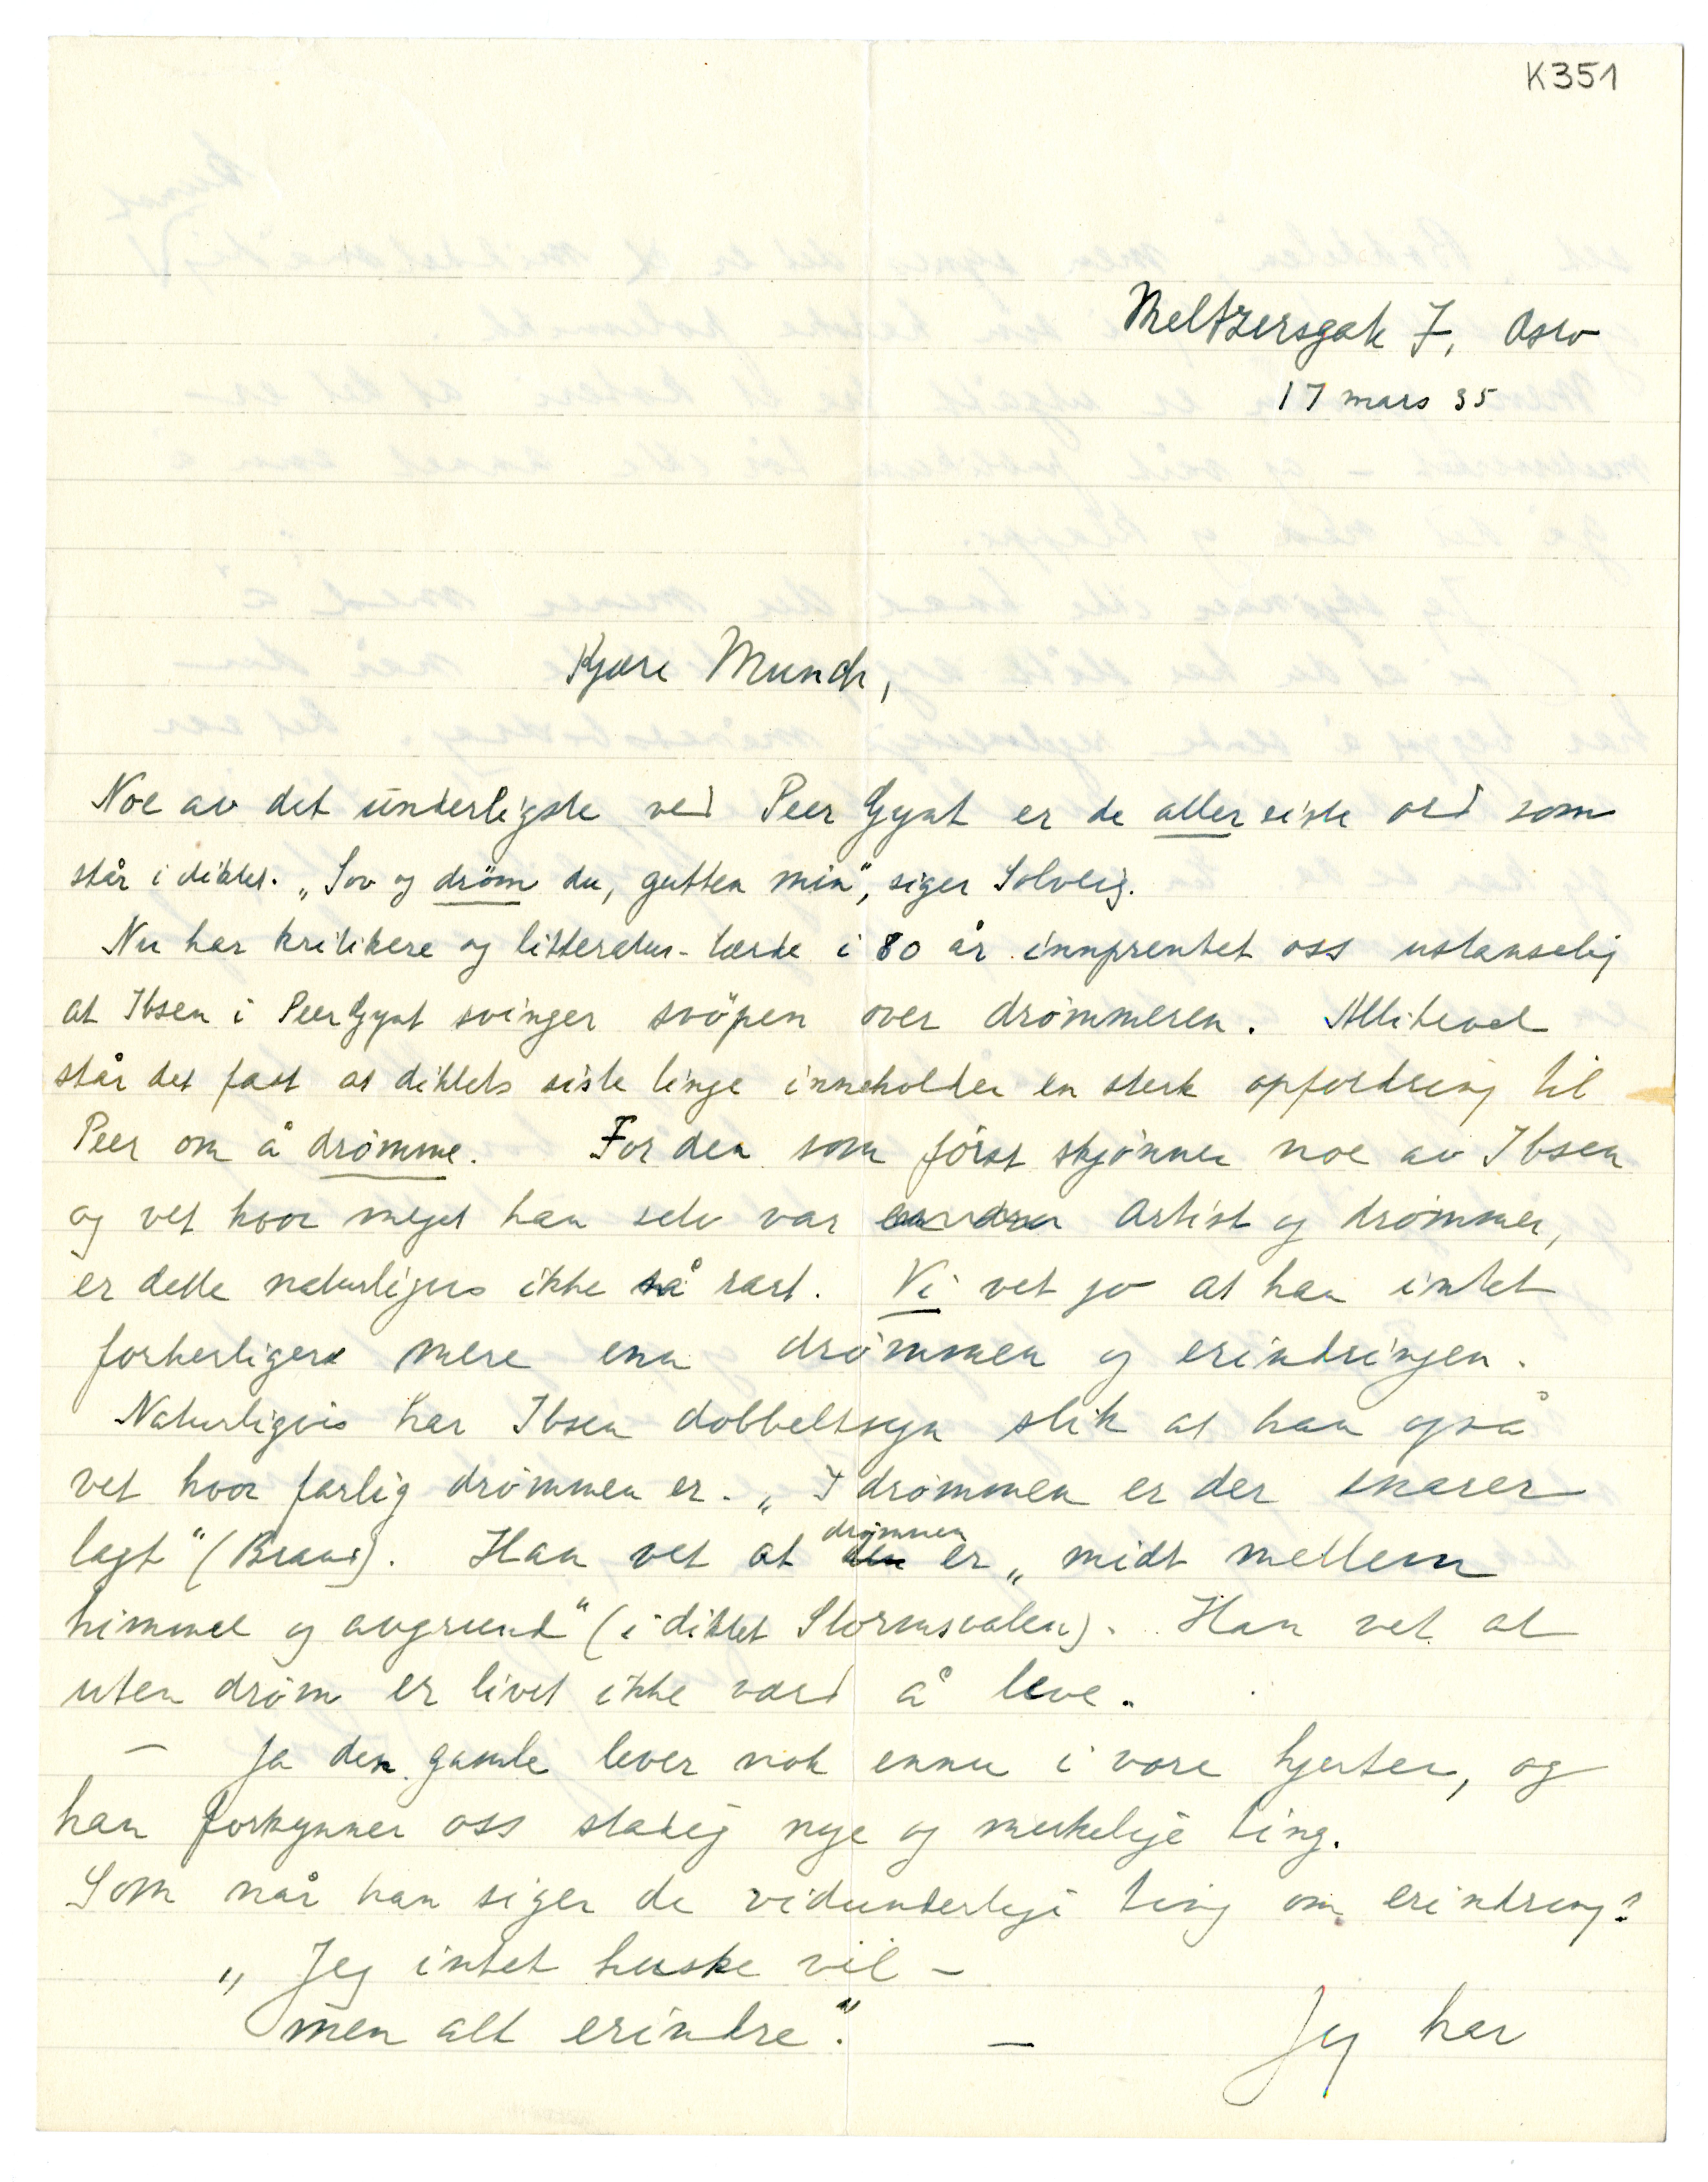 K351
Meltzersgate 7, Oslo
17 mars 35
Kjære Munch,
Noe av det underligste ved Peer Gynt er de aller siste ord som
står i diktet. „Sov og drøm du, gutten min“, siger Solveig.
Nu har kritikere og litteratur-lærde i 80 år innprentet oss ustanselig
at Ibsen i Peer Gynt svinger svöpen over drømmeren. Allikevel
står det fast at diktets siste linje inneholder en sterk opfordring til
Peer om å drømme. For den som først skjønner noe av Ibsen
og vet hvor meget han selv var artist og drømmer,
er dette naturligvis ikke så rart. Vi vet jo at han intet
forherliger mere enn drømmen og erindringen.
Naturligvis har Ibsen dobbeltsyn slik at han også
vet hvor farlig drømmen er. „I drømmen er der snarer
lagt“ (Brand). Han vet at drømmen er „midt mellem
himmel og avgrund“ (i diktet Stormsvalen). Han vet at
uten drøm er livet ikke værd å leve.
— Ja den gamle lever nok ennu i vore hjerter, og
han forkynner oss stadig nye og merkelige ting.
Som når han siger de vidunderlige ting om erindring:
„Jeg intet huske vil —
men alt erindre.“ — Jeg har